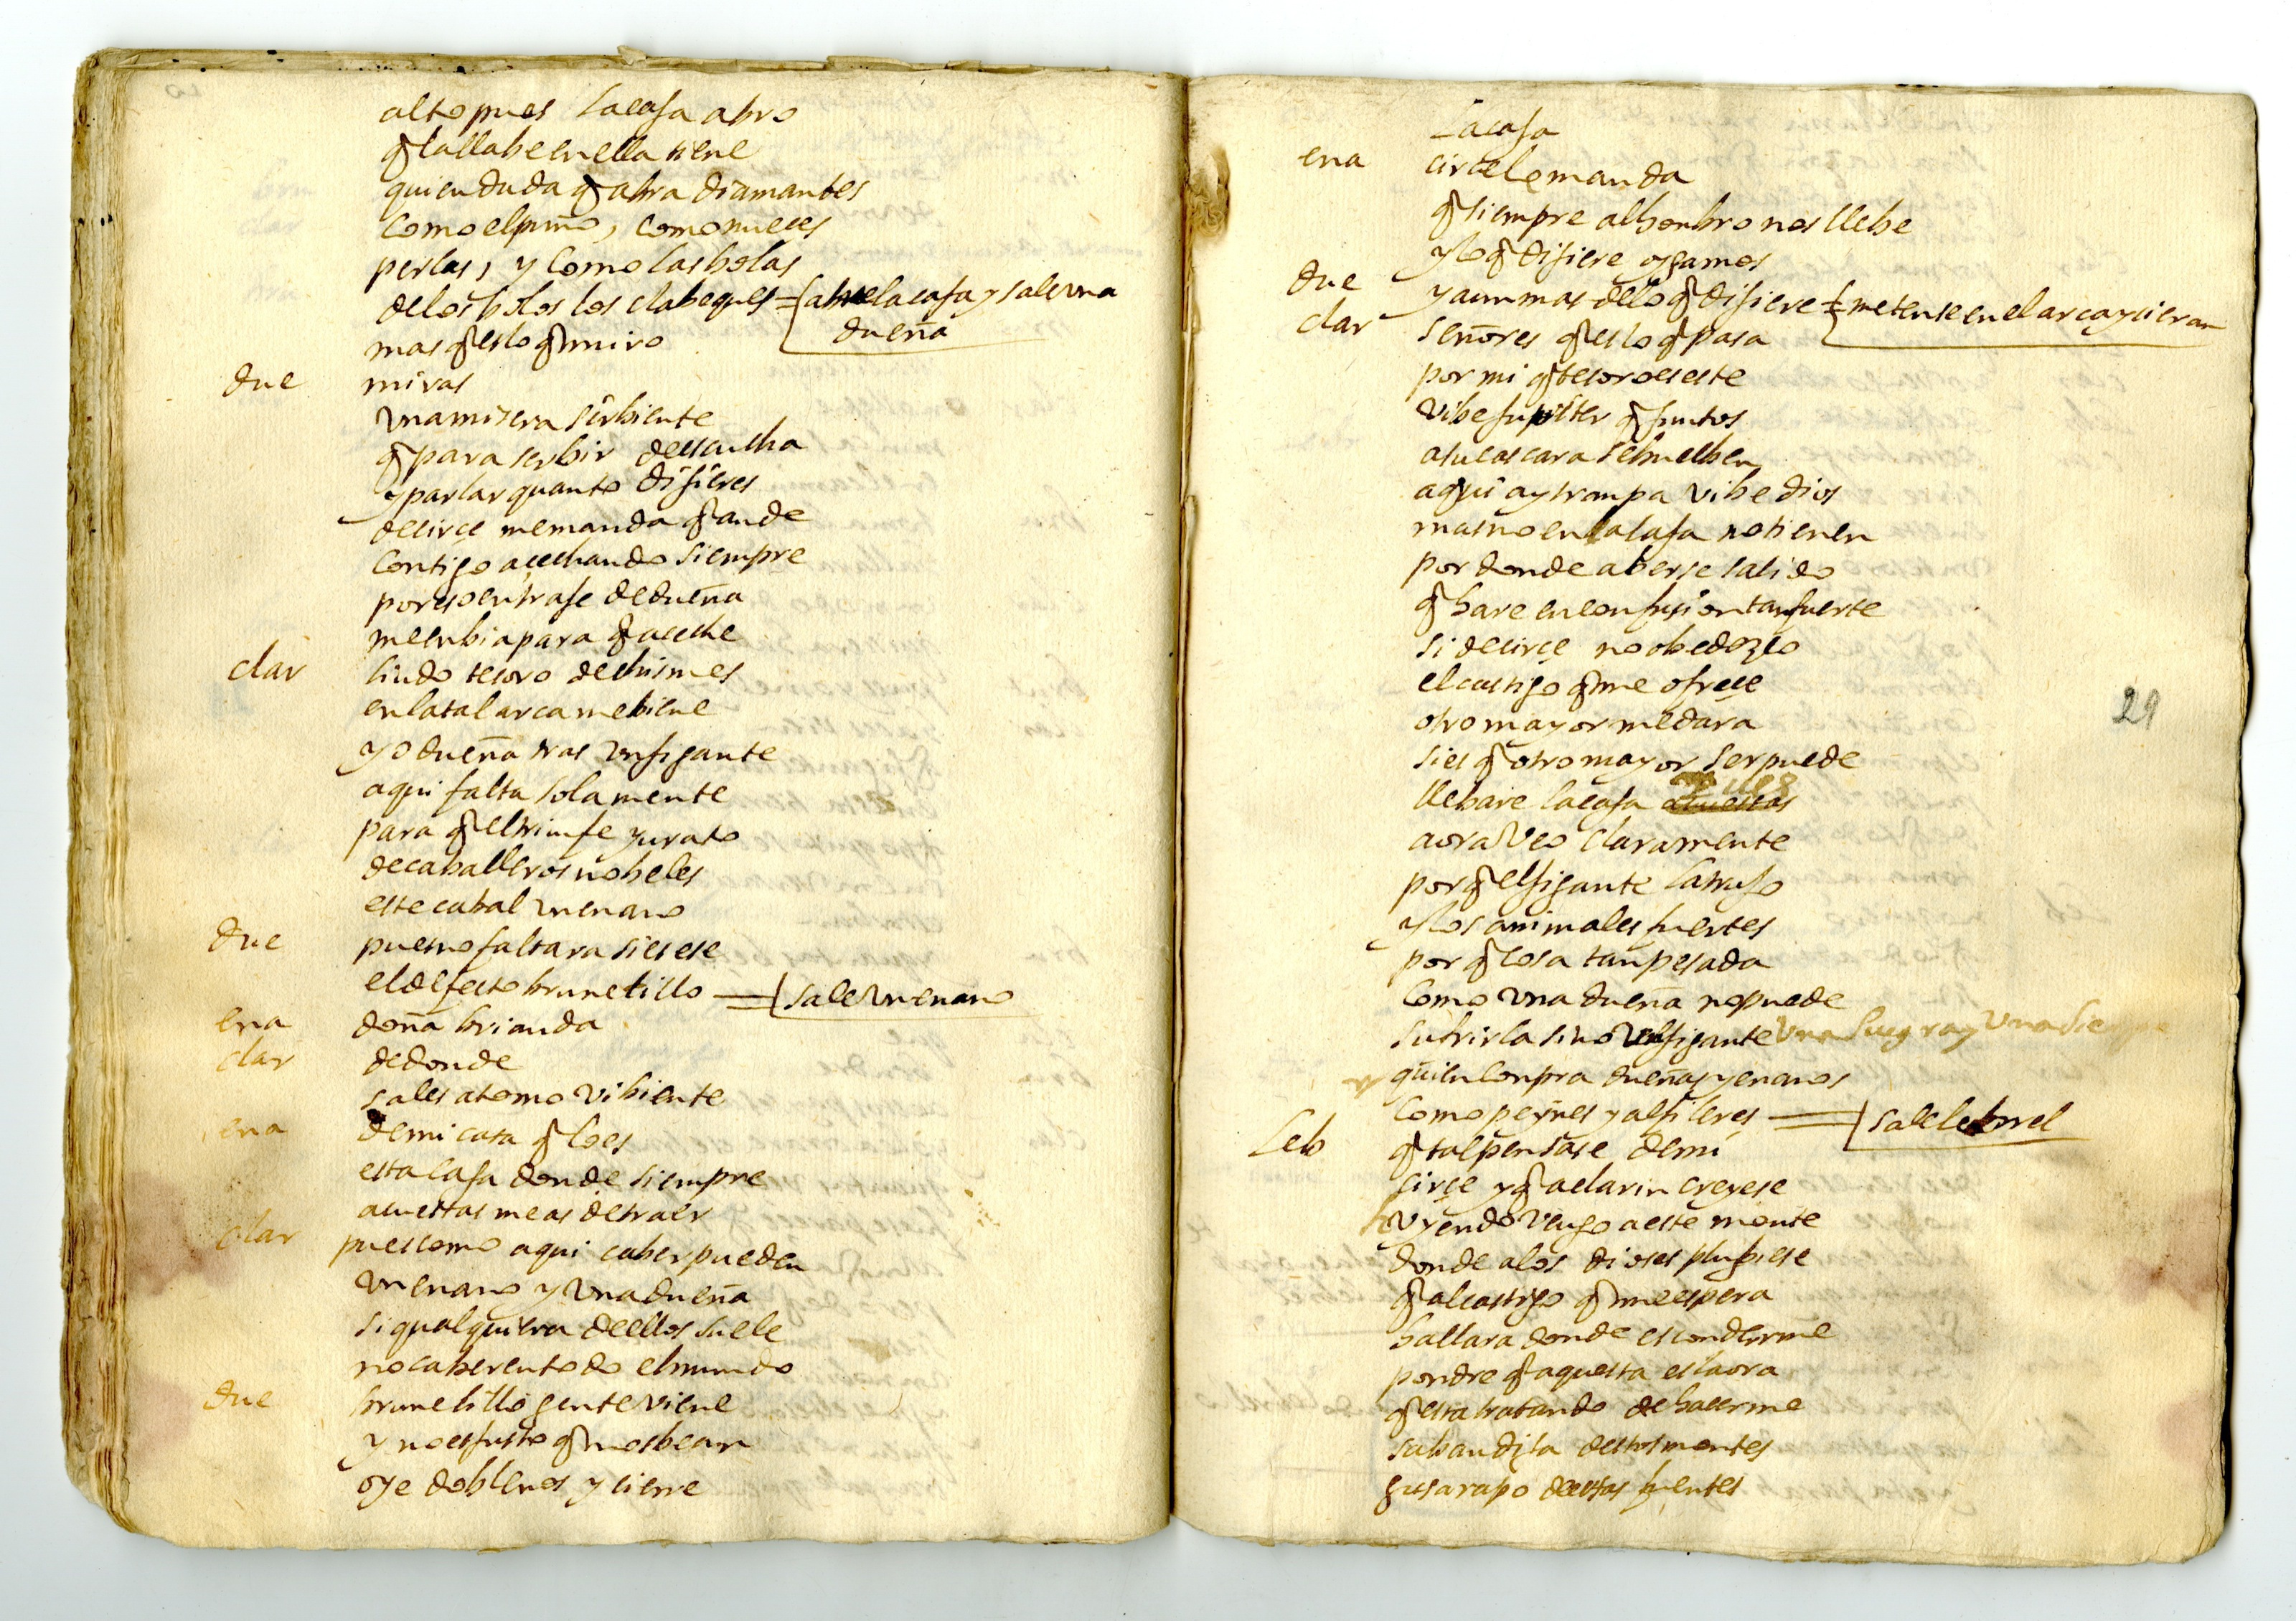 alto pues la caja abro
q̃ la llabe en ella tiene
quien duda q̃ abra diamantes
como el puño, como nueces
perlas, y como las bolas
de los bolos los clabeques = abre la caja y sale vna
dueña
mas q̃ es lo q̃ miro
due miras
vna misera sirbiente
q̃ para serbir de escucha
y parlar quanto dijeres
de cirçe me manda q̃ ande
contigo açechando siempre
por eso en traje de dueña
me enbia para q̃ aceche
clar lindo tesoro de chismes
en la tal arca me biene
yo dueña tras vn jigante
aqui falta solamente
para q̃ el triunfe y urato
de caballeros nobeles
este cabal vn enano
due pues no faltara si es ese
el defecto brunetillo = sale vn enano
ena doña brianda
clar de donde
sales atomo vibiente
ena de mi casa q̃ lo es
esta caja donde siempre
acuestas me as de traer
clar pues como aqui caber pueden
vn enano y vna dueña
si qualquiera de ellos suele
no caber en todo el mundo
due brunetillo gente viene
y no es justo q̃ nos bean
oye doblenos y cierre
la caja
ena circe le manda
q̃ siempre al honbro nos llebe
y lo q̃ dijere oygamos
due y aun mas de lo q̃ dijere = metense en el arca y cieran
clar señores q̃ es lo q̃ pasa
por mi q̃ tesoro es este
vibe jupiter q̃ juntos
a su cascara se buelben
aqui ay tranpa vibe dios
mas no en la caja no tienen
por donde aberse salido
q̃ hare en confusion tan fuerte
si de cirçe no obedezco
el castigo q̃ me ofreçe
otro mayor me dara
si es q̃ otro mayor ser puede
llebare la caja acuestas pues
aora veo claramente
por q̃ el jigante la trujo
y los animales fuertes
por q̃ cosa tan pesada
como vna dueña no puede
sufrirla sino vn jigante vna suegra y vna sierpe
quien conpra dueñas y enanos
como peynes y alfileres = sale lebrel
leb q̃ tal pensase de mi
cirçe y q̃ a clarin creyese
huyendo vengo a este monte
donde a los dioses plugiese
q̃ al castigo q̃ me espera
hallara donde esconderme
pondre q̃ aquesta es la ora
q̃ esta tratando de hacerme
sabandija destos montes
gusarapo de estas fuentes
29